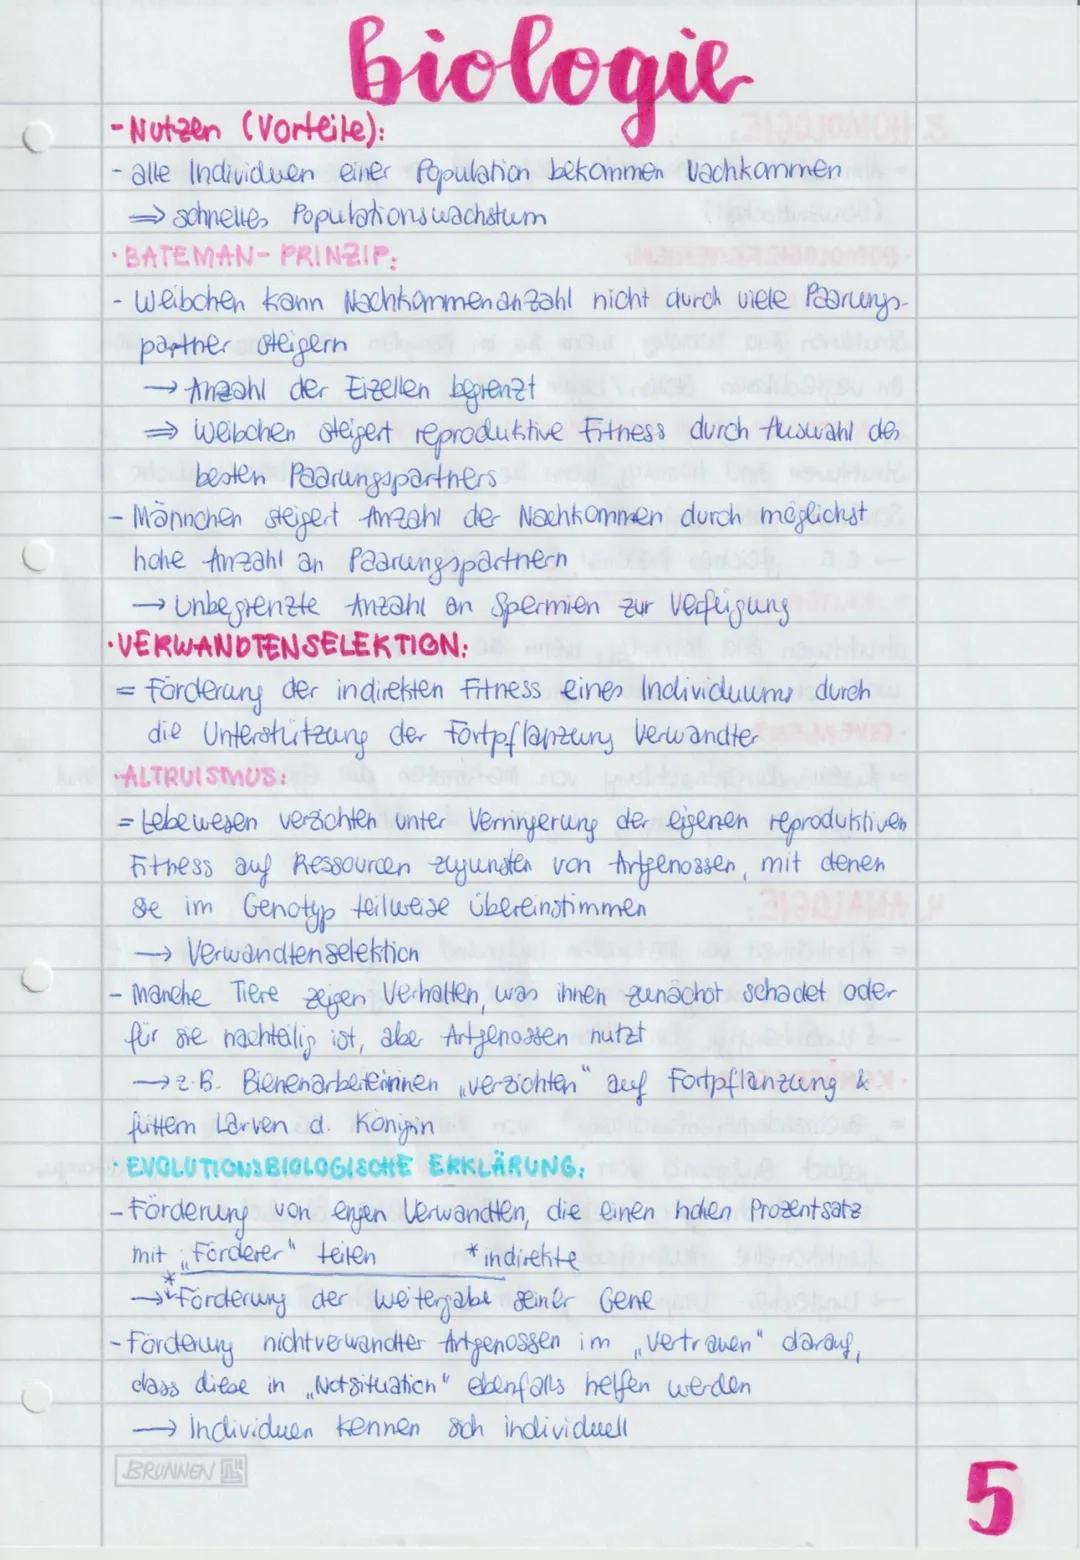 biologie
- Nutzen (Vorteile):
- alle Individuen einer Population bekommen Nachkommen
⇒ schnelles Populationswachstum
· BATEMAN-PRINZIP:
- Weibchen kann Nachkommenanzahl nicht durch viele Paarungs-
partner steigern
→ Anzahl der Eizellen begrenzt
⇒ Weibchen steigert reproduktive Fitness durch Auswahl des
besten Paarungspartners
- Männchen steigert Anzahl der Nachkommen durch möglichst
hohe Anzahl an Paarungspartnern
→ unbegrenzte Anzahl an Spermien zur Verfügung
· VERWANDTENSELEKTION:
= Förderung der indirekten Fitness eines Individuums durch
die Unterstützung der Fortpflanzung Verwandter
· ALTRUISMUS:
= Lebewesen verzichten unter Verringerung der eigenen reproduktiven
Fitness auf Ressourcen zugunsten von Artgenossen, mit denen
sie im Genotyp teilweise übereinstimmen
→ Verwandtenselektion
- Manche Tiere zeigen Verhalten, was ihnen zunächst schadet oder
für sie nachteilig ist, aber Artgenossen nutzt
→ z.B. Bienenarbeiterinnen „verzichten" auf Fortpflanzung &
füttern Larven d. Königin
· EVOLUTIONSBIOLOGISCHE ERKLÄRUNG:
- Förderung von engen Verwandten, die einen hohen Prozentsatz
mit „Förderer" teilen * indirekte
→ * Förderung der Weitergabe seiner Gene
- Förderung nichtverwandter Artgenossen im „Vertrauen" darauf,
dass diese in „Notsituation" ebenfalls helfen werden
→ Individuen kennen sich individuell
BRUNNEN
5